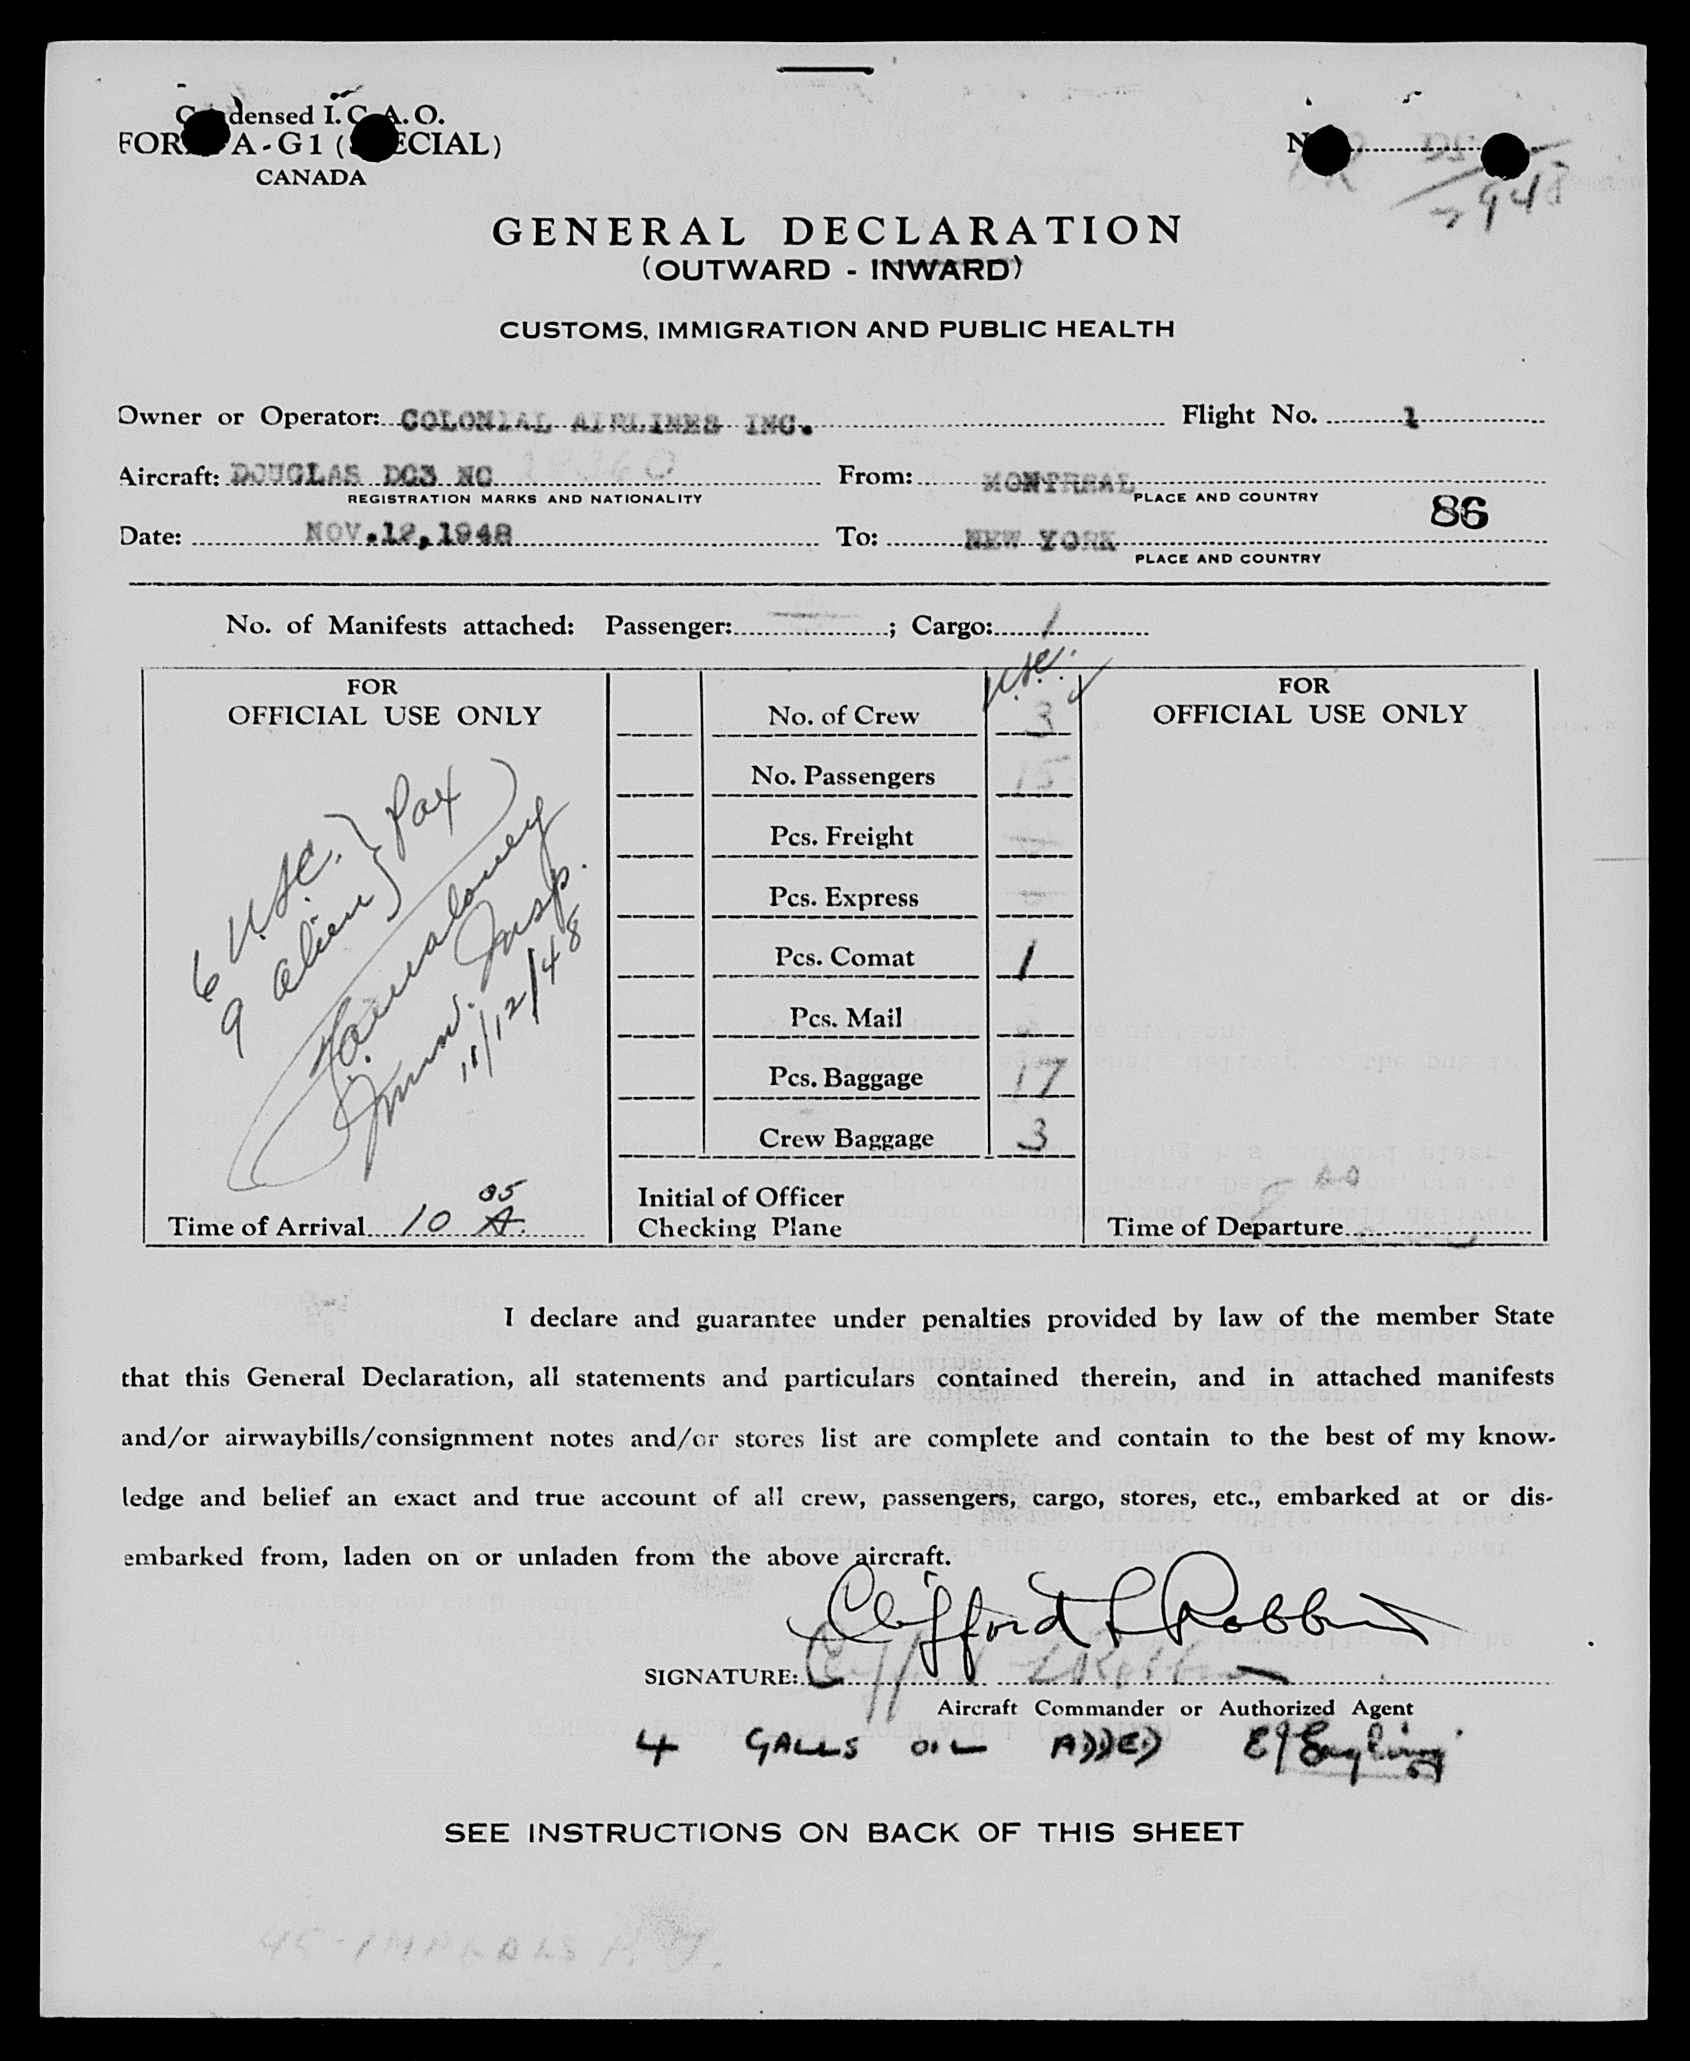 Condensed I. C. A. O.
FORM A-G1 (SPECIAL)
CANADA
No.
948
GENERAL DECLARATION
(OUTWARD - INWARD)
CUSTOMS, IMMIGRATION AND PUBLIC HEALTH
Owner or Operator: COLONIAL AIRLINES INC. Flight No. 1
Aircraft: DOUGLAS DC3 NC 18360 From: MONTREAL
REGISTRATION MARKS AND NATIONALITY PLACE AND COUNTRY
86
Date: NOV.12,1948 To: NEW YORK
PLACE AND COUNTRY
No. of Manifests attached: Passenger: — ; Cargo: 1
U.S.C.
FOR
OFFICIAL USE ONLY
6 U.S.C. } Pax
9 alien
Immn. Insp.
11/12/48
Time of Arrival 10 05 A.
No. of Crew 3
No. Passengers 15
Pcs. Freight —
Pcs. Express —
Pcs. Comat 1
Pcs. Mail
Pcs. Baggage 17
Crew Baggage 3
Initial of Officer
Checking Plane
FOR
OFFICIAL USE ONLY
Time of Departure
I declare and guarantee under penalties provided by law of the member State
that this General Declaration, all statements and particulars contained therein, and in attached manifests
and/or airwaybills/consignment notes and/or stores list are complete and contain to the best of my know-
ledge and belief an exact and true account of all crew, passengers, cargo, stores, etc., embarked at or dis-
embarked from, laden on or unladen from the above aircraft.
Clifford L Robbins
SIGNATURE:
Aircraft Commander or Authorized Agent
4 GALLS OIL ADDED
SEE INSTRUCTIONS ON BACK OF THIS SHEET